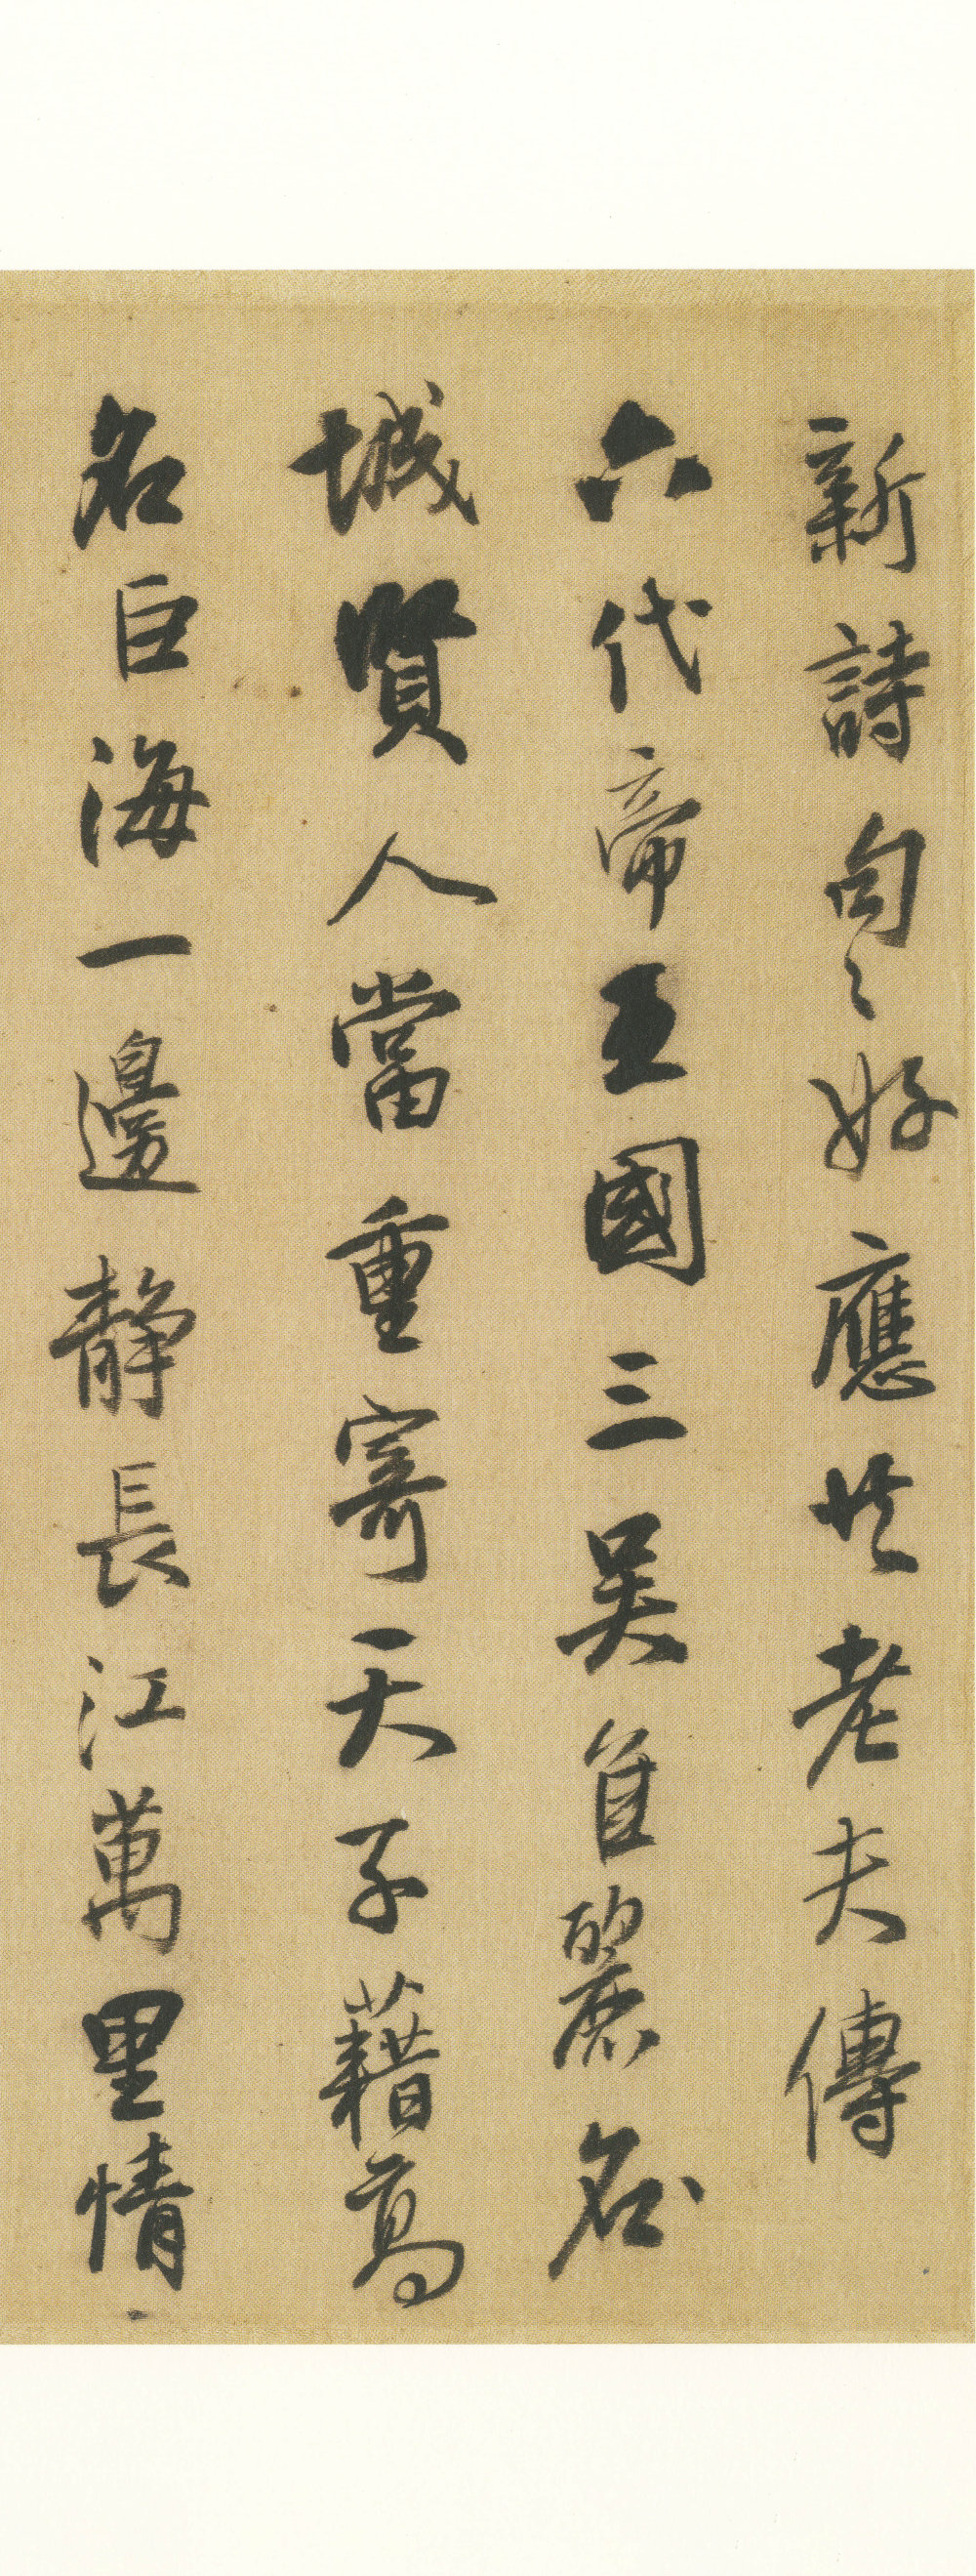 新詩句〻好應共老夫傳
六代帝王國三吳佳麗名
城賢人當重寄天子藉高
名巨海一邊靜長江萬里情